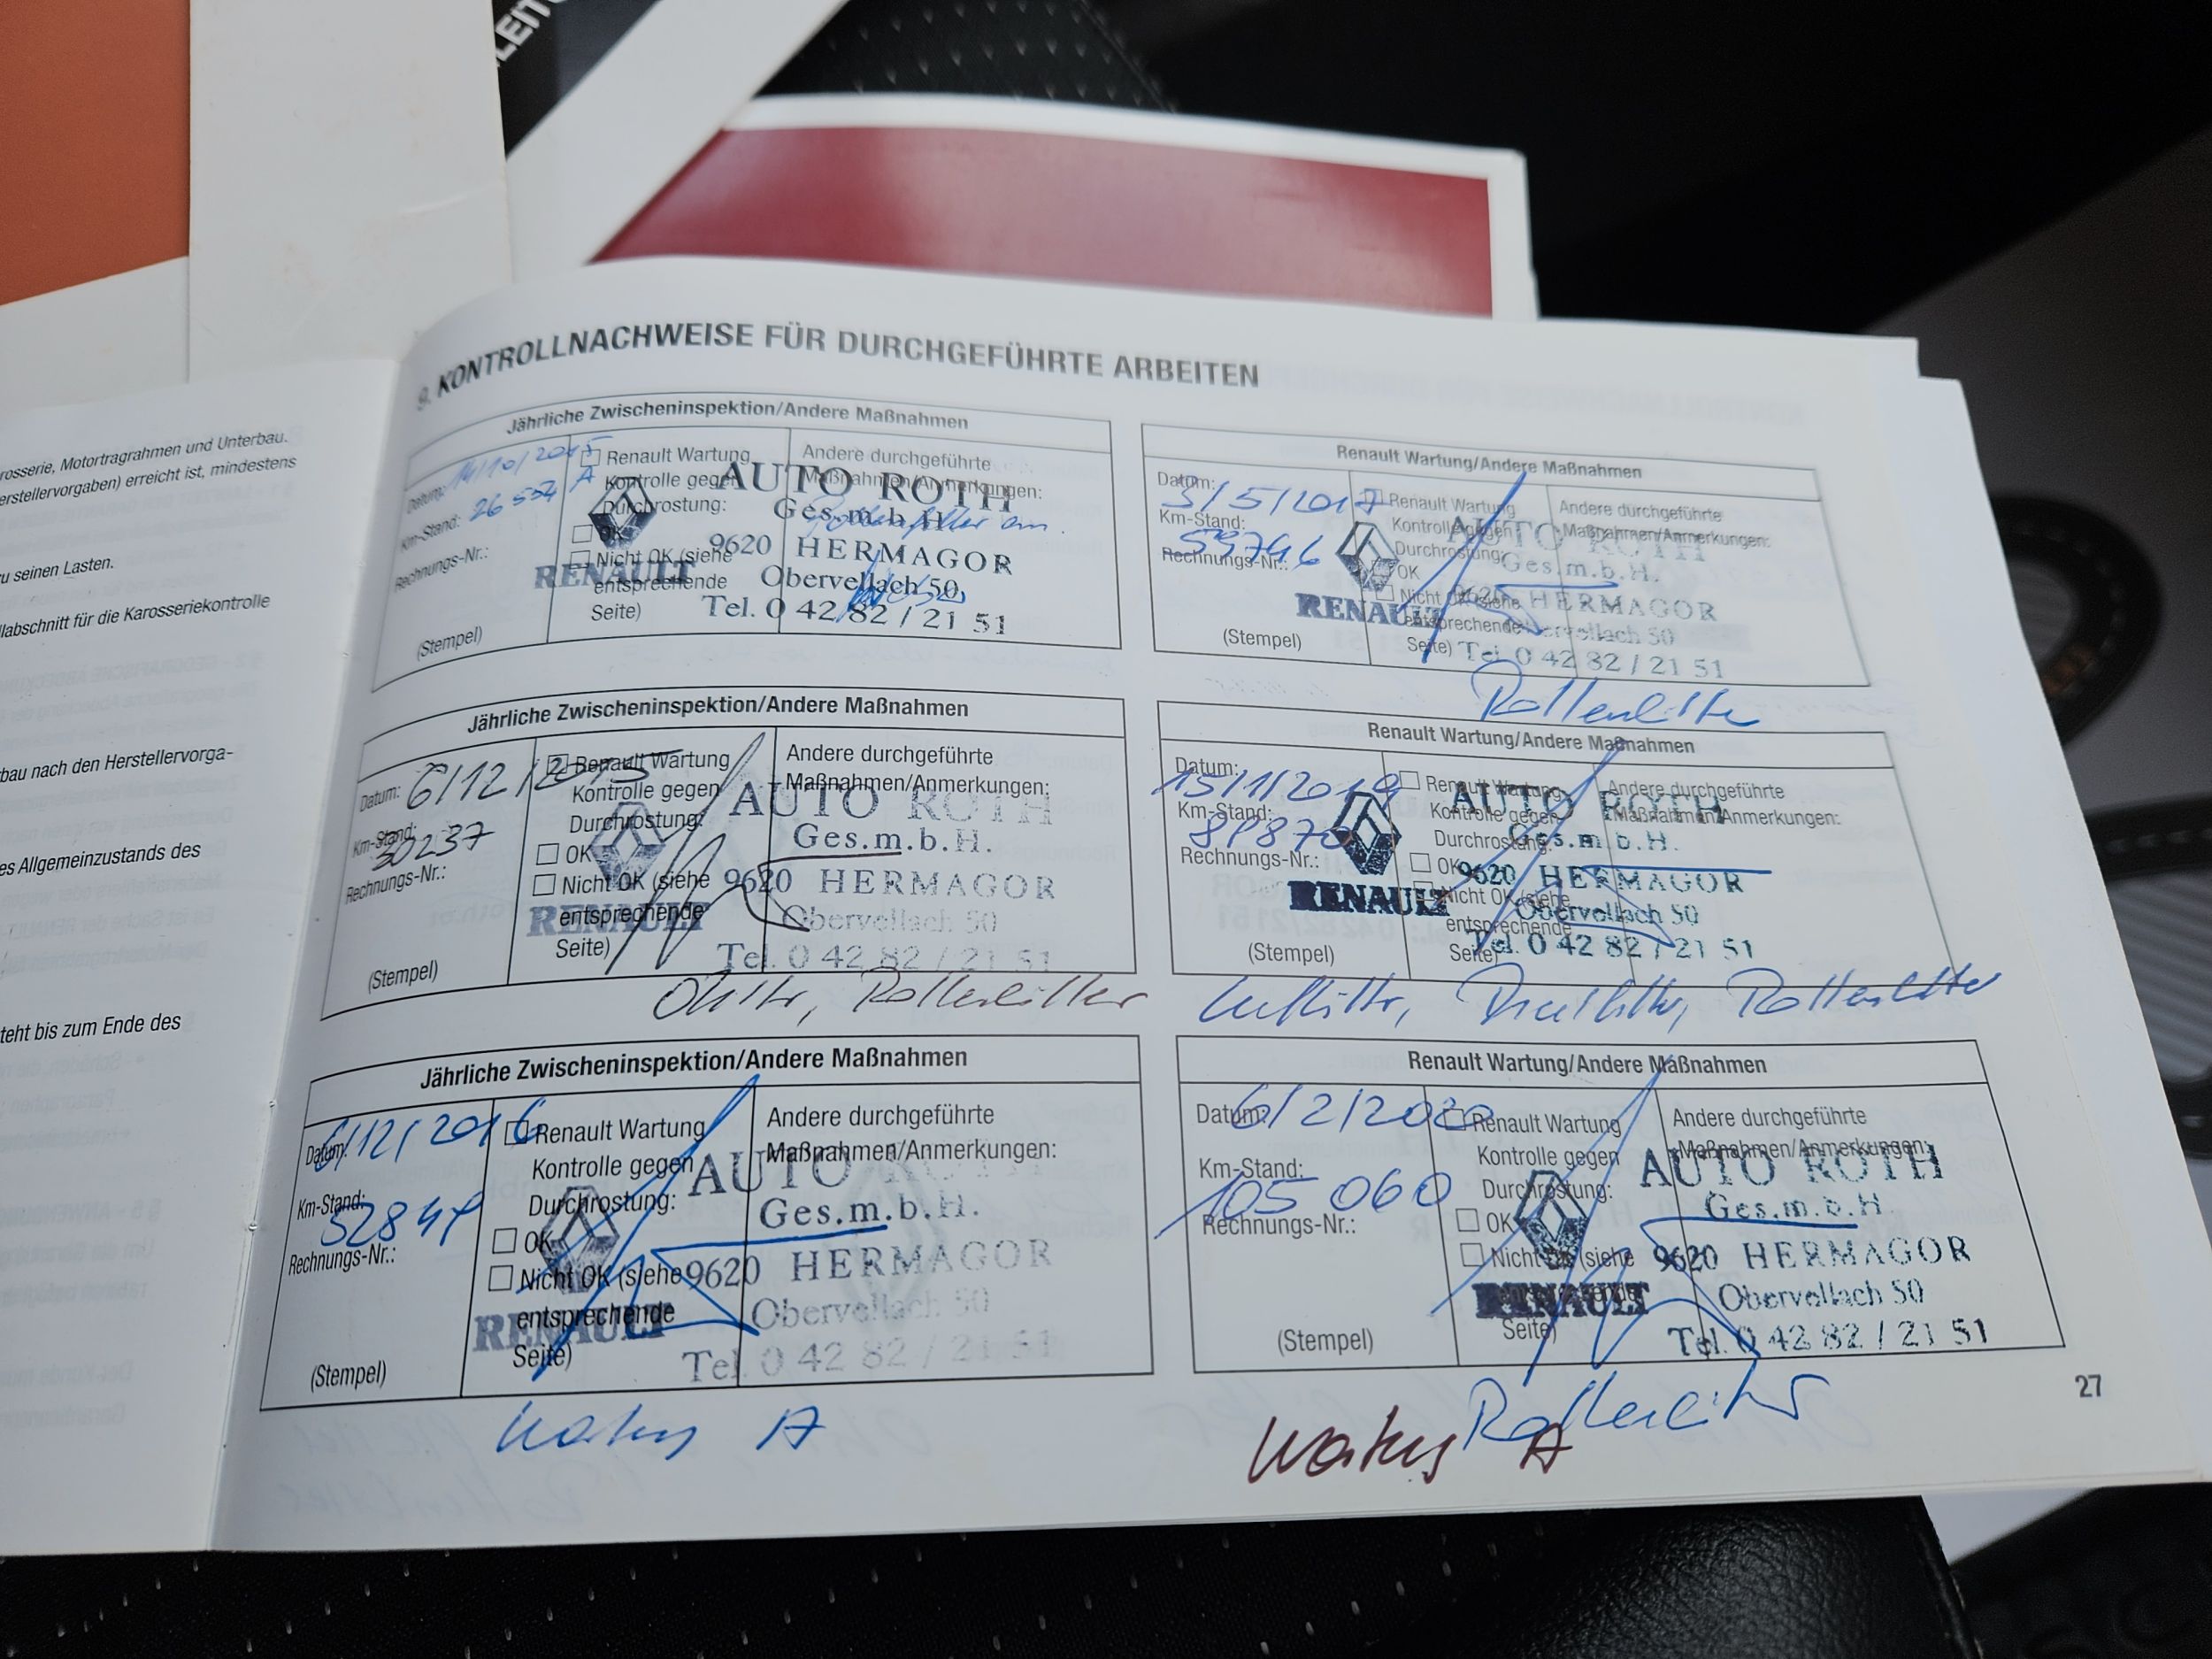 LEIT
rosserie, Motortragrahmen und Unterbau.
erstellervorgaben) erreicht ist, mindestens
u seinen Lasten.
llabschnitt für die Karosseriekontrolle
bau nach den Herstellervorga-
es Allgemeinzustands des
teht bis zum Ende des
9. KONTROLLNACHWEISE FÜR DURCHGEFÜHRTE ARBEITEN
Jährliche Zwischeninspektion/Andere Maßnahmen
Datum: 14/10/2015
Km-Stand: 26 557 A
Rechnungs-Nr.:
(Stempel)
Renault Wartung
Kontrolle gegen
Durchrostung:
OK
Nicht OK (siehe
entsprechende
Seite)
Andere durchgeführte
Maßnahmen/Anmerkungen:
RENAULT
AUTO ROTH
Ges.m.b.H.
9620 HERMAGOR
Obervellach 50
Tel. 0 42 82 / 21 51
Jährliche Zwischeninspektion/Andere Maßnahmen
Datum: 6/12/2015
Km-Stand: 30237
Rechnungs-Nr.:
(Stempel)
Renault Wartung
Kontrolle gegen
Durchrostung:
OK
Nicht OK (siehe
entsprechende
Seite)
Andere durchgeführte
Maßnahmen/Anmerkungen:
RENAULT
AUTO ROTH
Ges.m.b.H.
9620 HERMAGOR
Obervellach 50
Tel. 0 42 82 / 21 51
Jährliche Zwischeninspektion/Andere Maßnahmen
Datum: 6/12/2016
Km-Stand: 52848
Rechnungs-Nr.:
(Stempel)
Renault Wartung
Kontrolle gegen
Durchrostung:
OK
Nicht OK (siehe
entsprechende
Seite)
Andere durchgeführte
Maßnahmen/Anmerkungen:
RENAULT
AUTO ROTH
Ges.m.b.H.
9620 HERMAGOR
Obervellach 50
Tel. 0 42 82 / 21 51
Wartung A
Renault Wartung/Andere Maßnahmen
Datum: 3/5/2017
Km-Stand: 59746
Rechnungs-Nr.:
(Stempel)
Renault Wartung
Kontrolle gegen
Durchrostung:
OK
Nicht OK (siehe
entsprechende
Seite)
Andere durchgeführte
Maßnahmen/Anmerkungen:
RENAULT
AUTO ROTH
Ges.m.b.H.
9620 HERMAGOR
Obervellach 50
Tel. 0 42 82 / 21 51
Pollenfilter
Renault Wartung/Andere Maßnahmen
Datum: 15/1/2019
Km-Stand: 88870
Rechnungs-Nr.:
(Stempel)
Renault Wartung
Kontrolle gegen
Durchrostung:
OK
Nicht OK (siehe
entsprechende
Seite)
Andere durchgeführte
Maßnahmen/Anmerkungen:
RENAULT
AUTO ROTH
Ges.m.b.H.
9620 HERMAGOR
Obervellach 50
Tel. 0 42 82 / 21 51
Luftfilter, Pollenfilter
Renault Wartung/Andere Maßnahmen
Datum: 6/2/2020
Km-Stand: 105 060
Rechnungs-Nr.:
(Stempel)
Renault Wartung
Kontrolle gegen
Durchrostung:
OK
Nicht OK (siehe
entsprechende
Seite)
Andere durchgeführte
Maßnahmen/Anmerkungen:
RENAULT
AUTO ROTH
Ges.m.b.H.
9620 HERMAGOR
Obervellach 50
Tel. 0 42 82 / 21 51
Pollenfilter
Wartung A
27